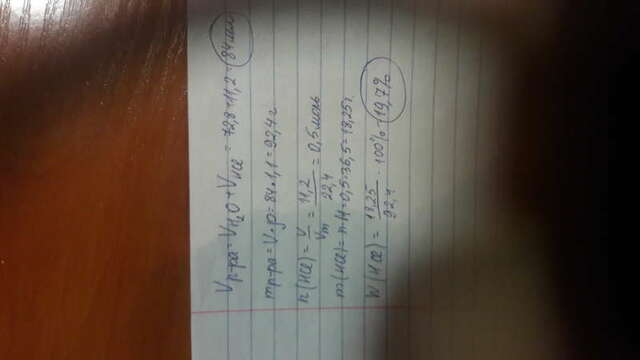 Vр-ра = V H₂O + V HCl = 72,8 + 11,2 = 84 мл
mр-ра = V·ρ = 84·1,1 = 92,4 г
n(HCl) = V/Vm = 11,2/22,4 = 0,5 моль
m(HCl) = n·M = 0,5·36,5 = 18,25 г
W(HCl) = 18,25/92,4 · 100% = 19,7%